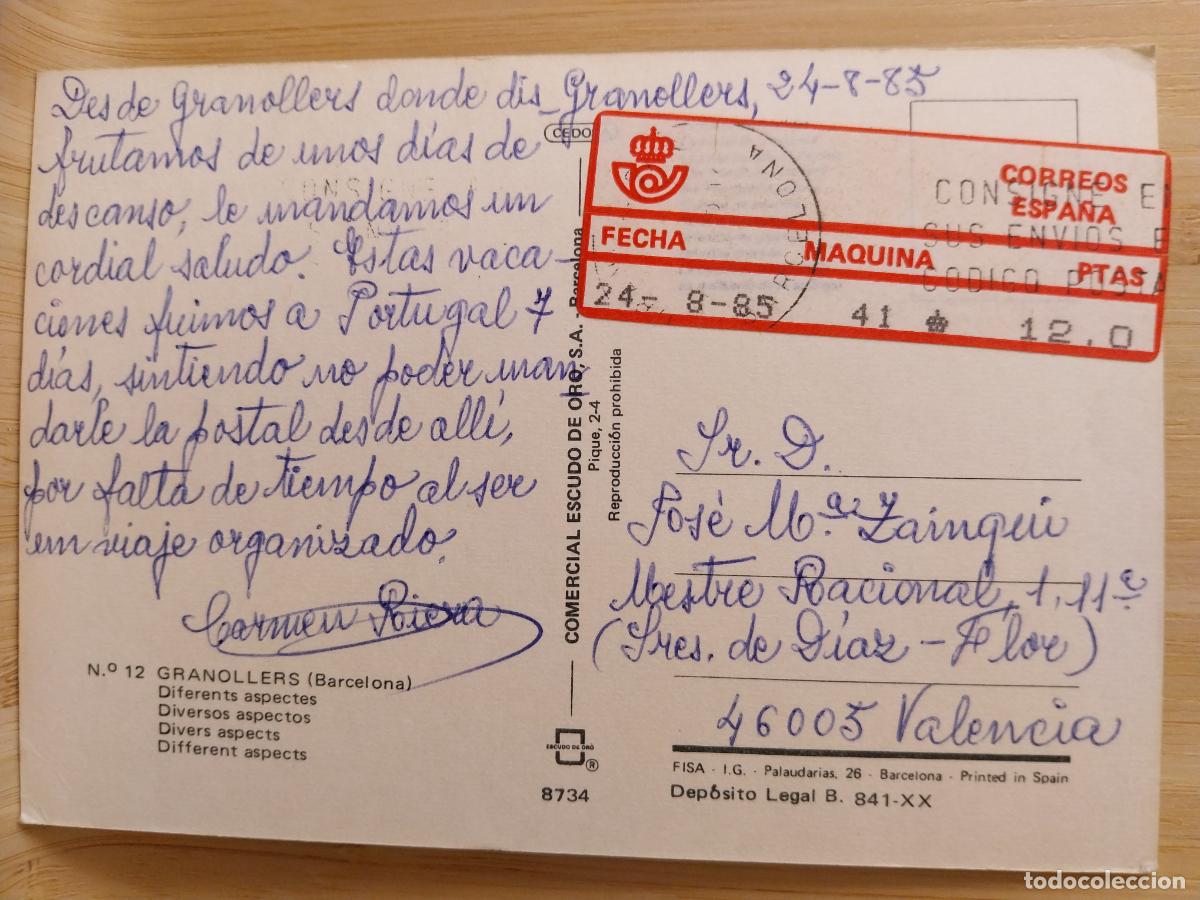 Desde Granollers donde dis_
frutamos de unos días de
descanso, le mandamos un
cordial saludo. Estas vaca-
ciones fuimos a Portugal 7
días, sintiendo no poder man
darle la postal desde allí,
por falta de tiempo al ser
un viaje organizado.
Carmen Riera
Granollers, 24-8-85
N.º 12 GRANOLLERS (Barcelona)
Diferents aspectes
Diversos aspectos
Divers aspects
Different aspects
CEDO
COMERCIAL ESCUDO DE ORO, S.A. - Barcelona
Pique, 2-4
Reproducción prohibida
ESCUDO DE ORO
®
8734
CORREOS
ESPAÑA
FECHA MAQUINA PTAS
24- 8-85 41 12.0
CONSIGNE EN
SUS ENVIOS E
CODIGO POSTA
BARCELONA
Sr. D.
José M.ª
Mestre Racional, 1, 11ª
(Sres. de Díaz - Flor)
46005 Valencia
FISA - I.G. - Palaudarias, 26 - Barcelona - Printed in Spain
Depósito Legal B. 841-XX
todocoleccion